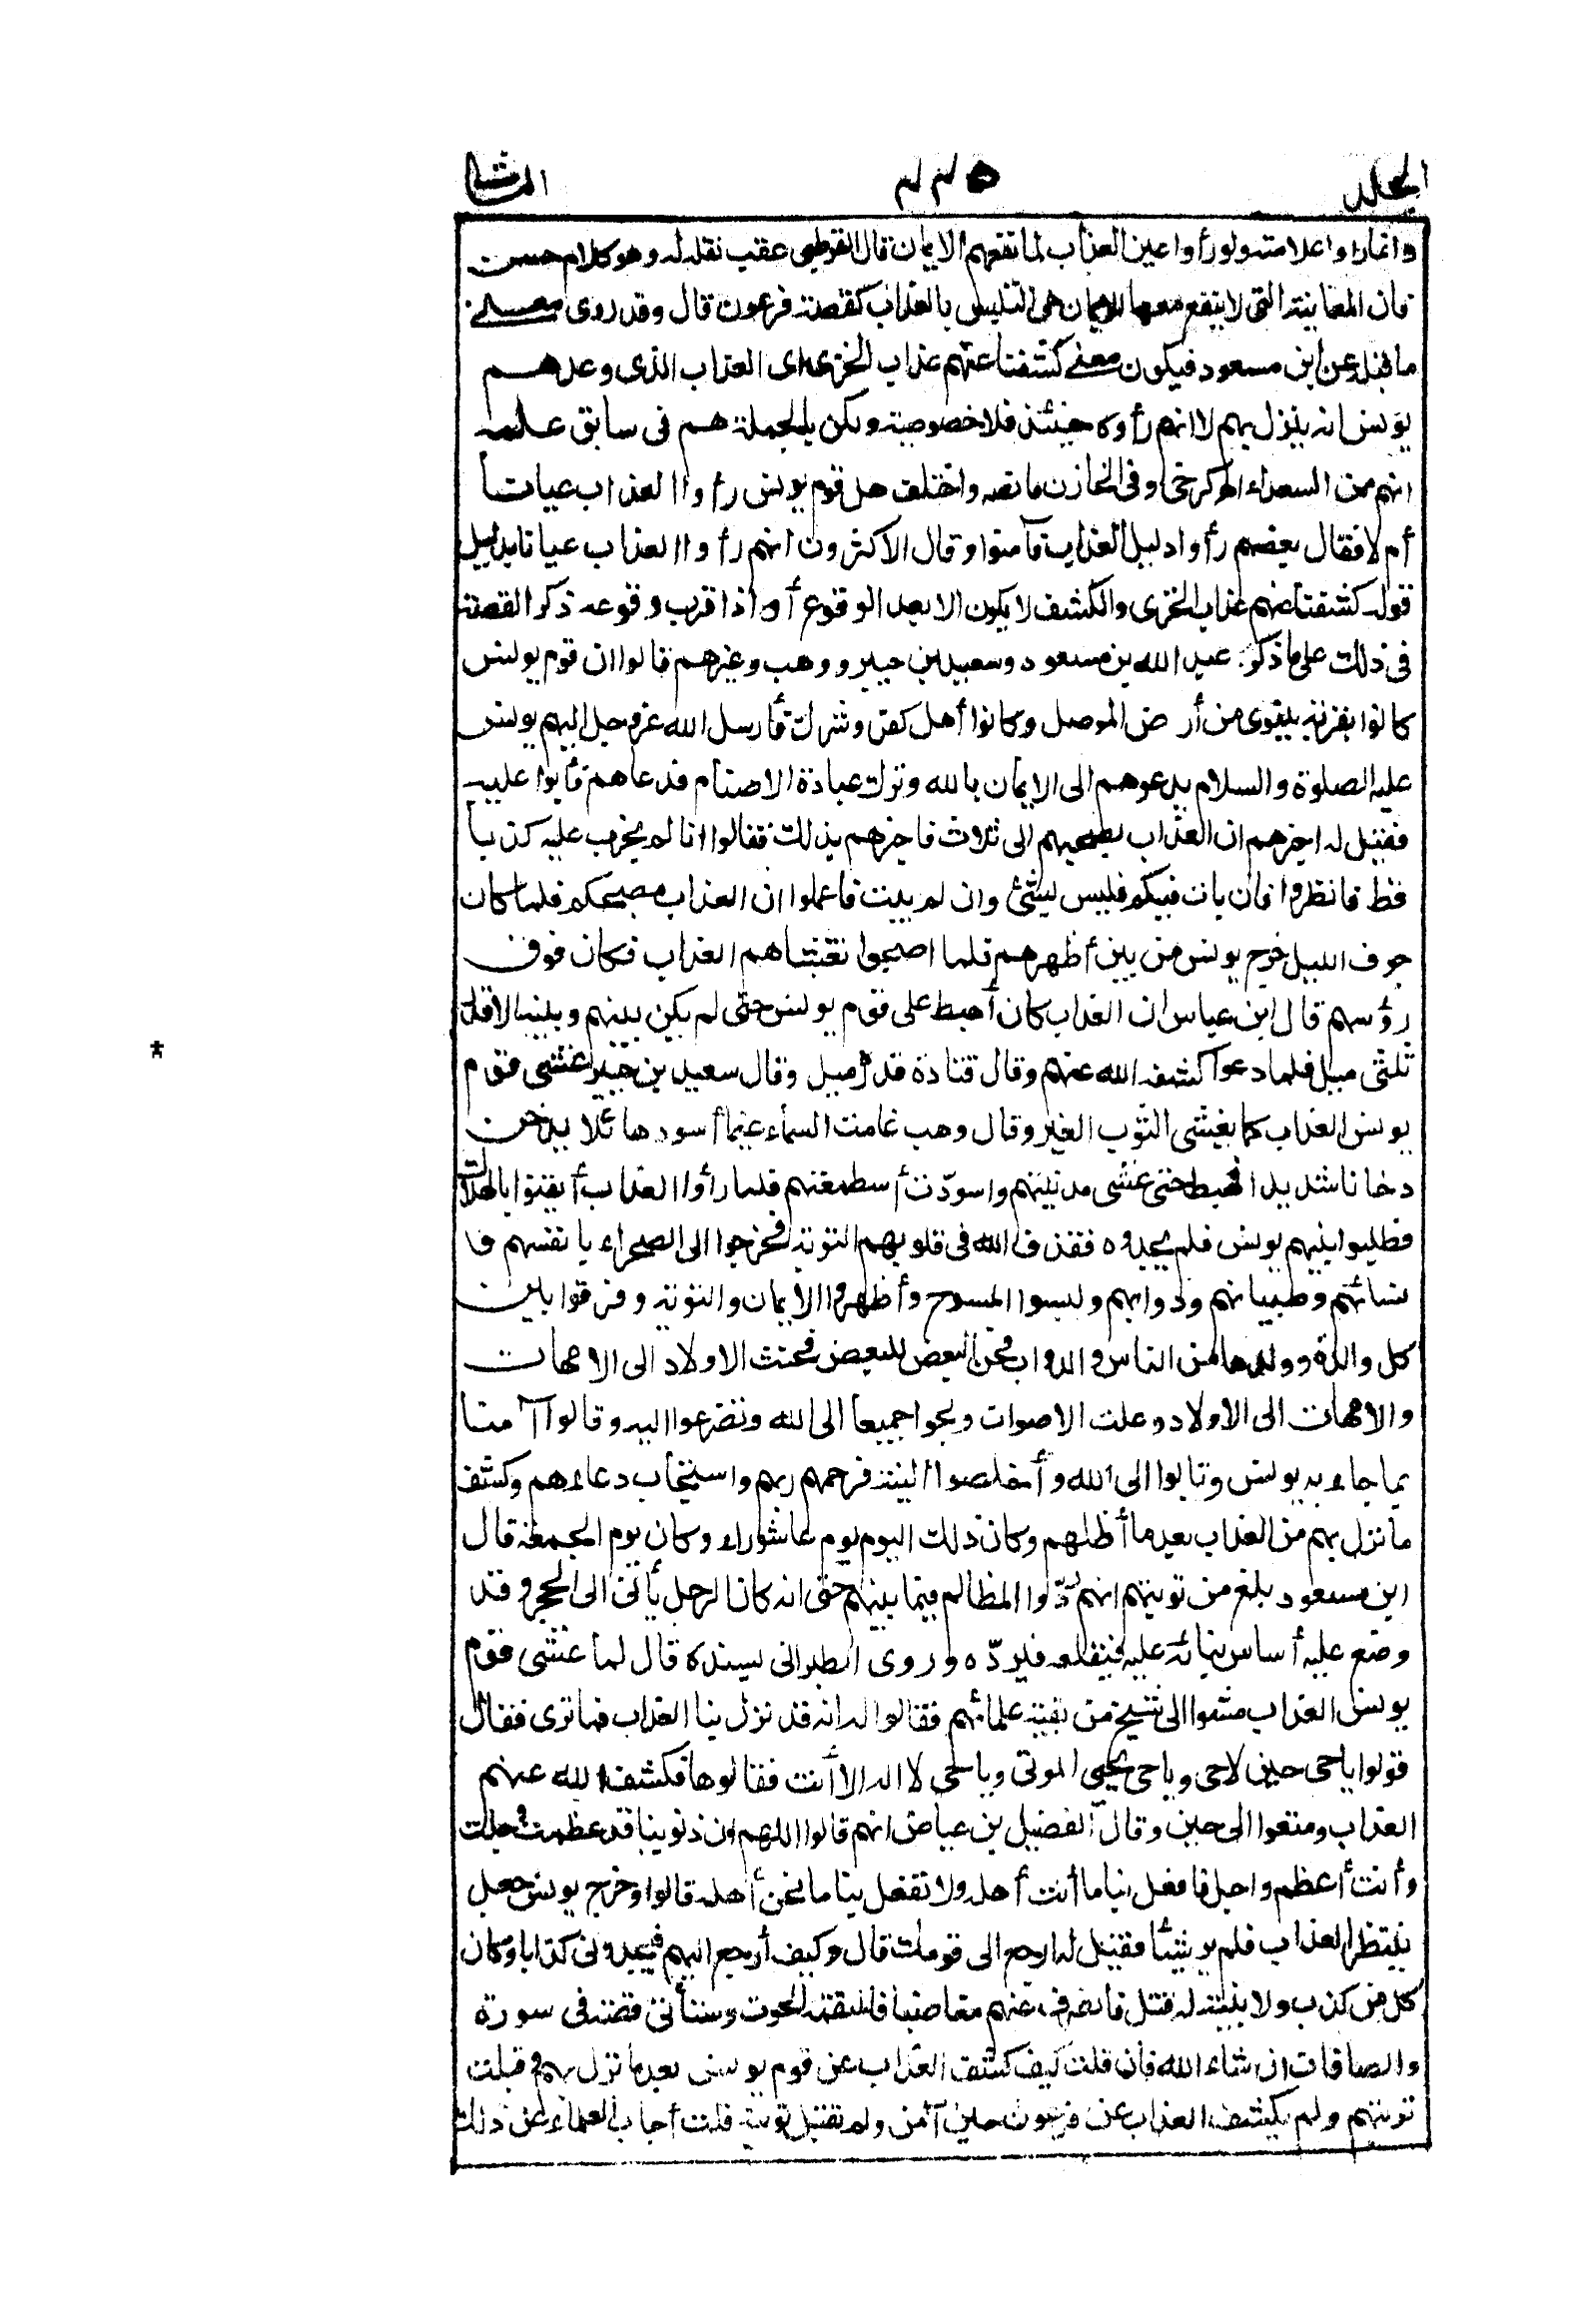 المجلد ٥٤٤ الثانى
وانما رأوا علامته ولو رأوا عين العذاب لما نفعهم الايمان قال القرطبى عقب نقله له وهو كلام حسن
فان المعاينة التى لا ينفع معها الايمان هى التلبس بالعذاب كقصة فرعون قال وقد روى معنى
ما قيل عن ابن مسعود فيكون معنى كشفنا عنهم عذاب الخزى اى العذاب الذى وعدهم
يونس انه ينزل بهم لا انهم رأوه حينئذ فلا خصوصية ولكن بالجملة هم فى سابق علمه
انهم من السعداء اه كرخى وفى الخازن ما نصه واختلف هل قوم يونس رأوا العذاب عيانا
أم لا فقال بعضهم رأوا دليل العذاب فآمنوا وقال الاكثرون انهم رأوا العذاب عيانا بدليل
قوله كشفنا عنهم عذاب الخزى والكشف لا يكون الا بعد الوقوع أو اذا قرب وقوعه ذكر القصة
فى ذلك على ما ذكره عبد الله بن مسعود وسعيد بن جبير ووهب وغيرهم قالوا ان قوم يونس
كانوا بقرية بنينوى من أرض الموصل وكانوا أهل كفر وشرك فأرسل الله عز وجل اليهم يونس
عليه الصلوة والسلام يدعوهم الى الايمان بالله وترك عبادة الاصنام فدعاهم فأبوا عليه
فقيل له اخبرهم ان العذاب يصبحهم الى ثلاث فاخبرهم بذلك فقالوا انا لم نجرب عليه كذبا
قط فانظروا فان بات فيكم فليس بشئ وان لم يبت فاعلموا ان العذاب مصبحكم فلما كان
جوف الليل خرج يونس من بين أظهرهم فلما اصبحوا تغشاهم العذاب فكان فوق
رؤسهم قال ابن عباس ان العذاب كان أهبط على قوم يونس حتى لم يكن بينهم وبينه الا قدر
ثلثى ميل فلما دعوا كشفه الله عنهم وقال قتادة قدر ميل وقال سعيد بن جبير غشى قوم
يونس العذاب كما يغشى الثوب القبر وقال وهب غامت السماء غيما أسود هائلا يدخن
دخانا شديدا فهبط حتى غشى مدينتهم واسودّت أسطحتهم فلما رأوا العذاب أيقنوا بالهلاك
فطلبوا نبيهم يونس فلم يجدوه فقذف الله فى قلوبهم التوبة فخرجوا الى الصحراء بانفسهم و
نسائهم وصبيانهم ودوابهم ولبسوا المسوح وأظهروا الايمان والتوبة وفرقوا بين
كل والدة وولدها من الناس والدواب فحن البعض للبعض فحنت الاولاد الى الامهات
والامهات الى الاولاد وعلت الاصوات ولجوا جميعا الى الله وتضرعوا اليه وقالوا آمنا
بما جاء به يونس وتابوا الى الله وأخلصوا النية فرحمهم ربهم واستجاب دعاءهم وكشف
ما نزل بهم من العذاب بعد ما أظلهم وكان ذلك اليوم يوم عاشوراء وكان يوم الجمعة قال
ابن مسعود بلغ من توبتهم انهم ردّوا المظالم فيما بينهم حتى انه كان الرجل يأتى الى الحجر وقد
وضع عليه أساس بنيانه عليه فيقلعه فيردّه وروى الطبرانى بسنده قال لما غشى قوم
يونس العذاب مشوا الى شيخ من بقية علمائهم فقالوا له انه قد نزل بنا العذاب فما ترى فقال
قولوا ياحى حين لا حى وياحى يحيى الموتى وياحى لا اله الا أنت فقالوها فكشف الله عنهم
العذاب ومتعوا الى حين وقال الفضيل بن عياض انهم قالوا اللهم ان ذنوبنا قد عظمت وجلت
وأنت أعظم واجل فافعل بنا ما أنت أهله ولا تفعل بنا ما نحن أهله قالوا وخرج يونس وجعل
ينتظر العذاب فلم ير شيئا فقيل له ارجع الى قومك قال وكيف أرجع اليهم فيجدونى كذابا وكان
كل من كذب ولا بينة له قتل فانصرف عنهم مغاضبا فالتقمه الحوت وستأتى قصته فى سورة
والصافات ان شاء الله فان قلت كيف كشف العذاب عن قوم يونس بعد ما نزل بهم وقبلت
توبتهم ولم يكشف العذاب عن فرعون حين آمن ولم تقبل توبته قلت أجاب العلماء عن ذلك